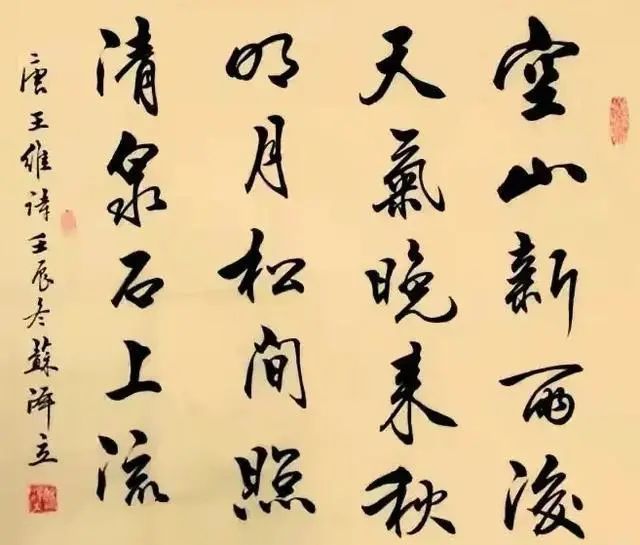 空山新雨後
天氣晚来秋
明月松間照
清泉石上流
唐王維詩壬辰冬蘇澤立